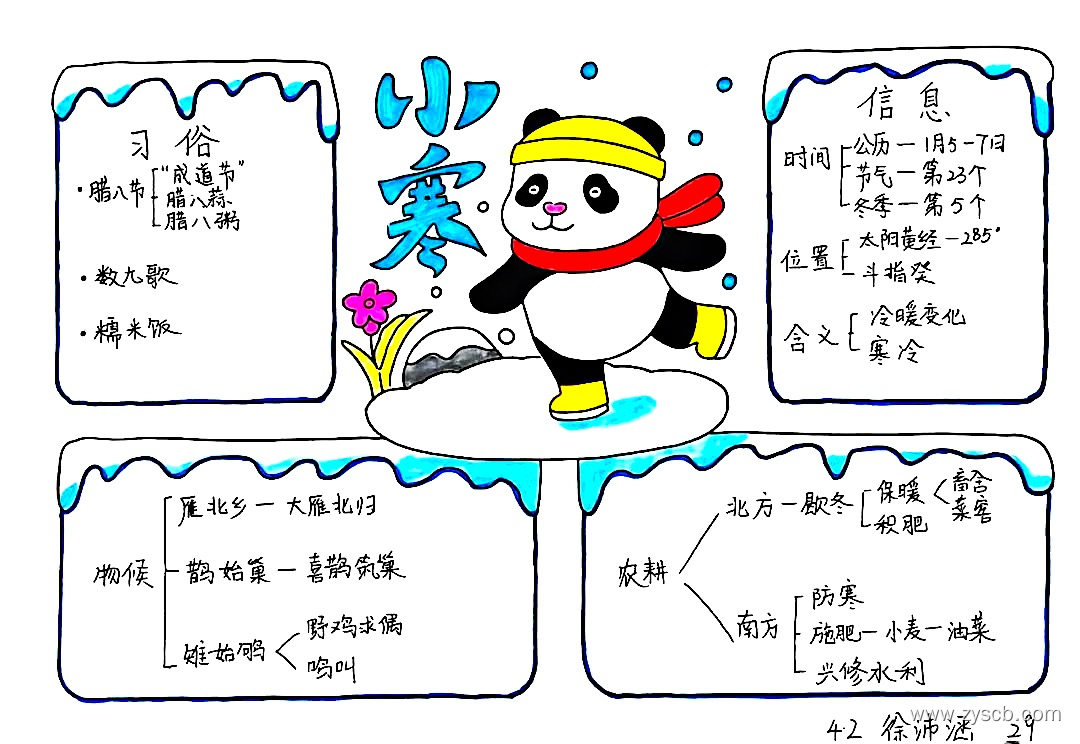 小寒
习俗
·腊八节
"成道节"
腊八蒜
腊八粥
·数九歌
·糯米饭
信息
时间
公历—1月5-7日
节气—第23个
冬季—第5个
位置
太阳黄经—285°
斗指癸
含义
冷暖变化
寒冷
物候
雁北乡—大雁北归
鹊始巢—喜鹊筑巢
雉始鸲
野鸡求偶
鸣叫
农耕
北方—歇冬
保暖
畜舍
菜窖
积肥
南方
防寒
施肥—小麦—油菜
兴修水利
4.2 徐沛涵 29
www.zyscb.com